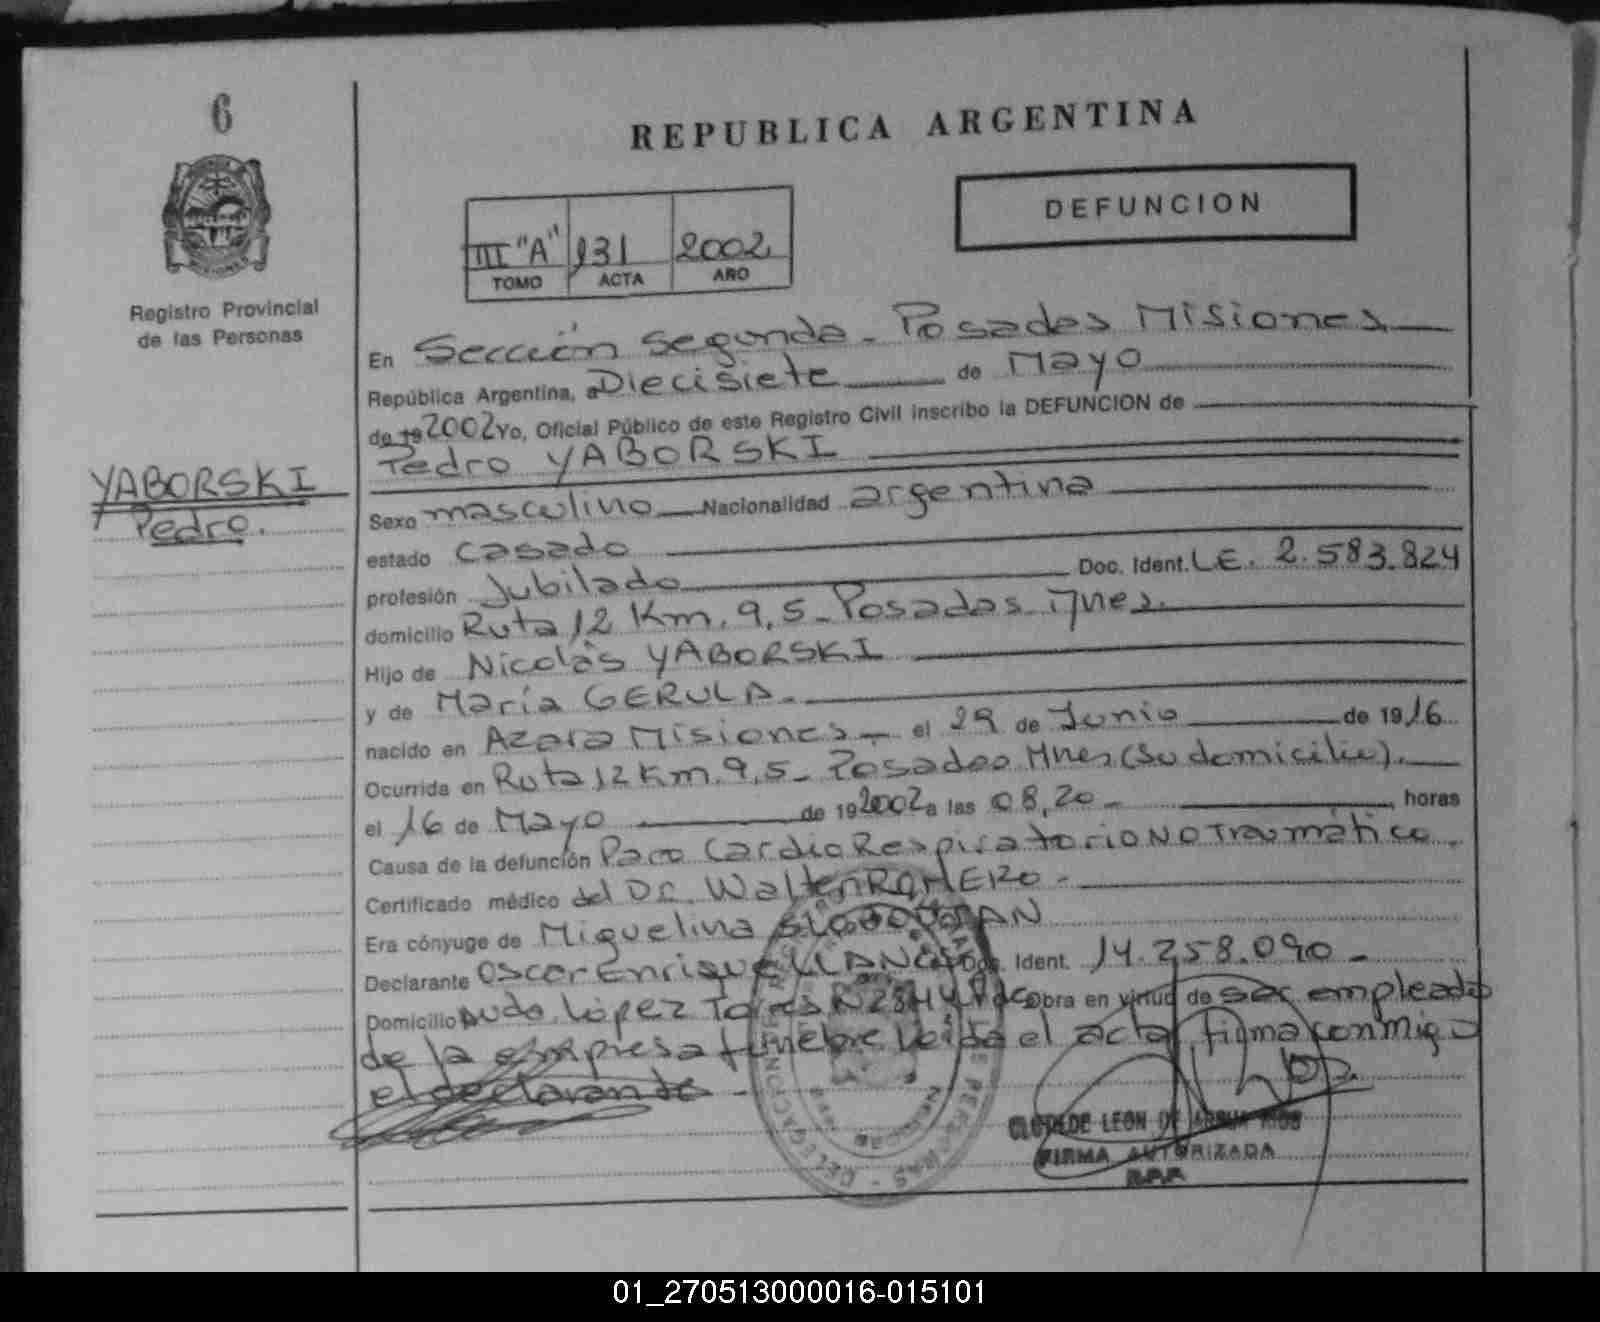 6
REPUBLICA ARGENTINA
DEFUNCION
III "A" 131 2002
TOMO ACTA AÑO
Registro Provincial
de las Personas
En Sección Segunda - Posadas Misiones
República Argentina, a Diecisiete de Mayo
de 19 2002 Yo, Oficial Público de este Registro Civil inscribo la DEFUNCION de
Pedro YABORSKI
YABORSKI
Pedro.
Sexo masculino Nacionalidad argentina
estado casado
profesión Jubilado Doc. Ident. L.E. 2.583.824
domicilio Ruta 12 Km. 9,5 - Posadas Mnes.
Hijo de Nicolás YABORSKI
y de María GERULA -
nacido en Azara Misiones - el 29 de Junio de 1916
Ocurrida en Ruta 12 Km. 9,5 - Posadas Mnes (su domicilio).
el 16 de Mayo de 19 2002 a las 08,20 - horas
Causa de la defunción Paro Cardio Respiratorio NO Traumático
Certificado médico del Dr. Walter ROMERO -
Era cónyuge de Miguelina
Declarante Oscar Enrique Doc. Ident. 14.258.090 -
Domicilio Avda. López Torres obra en virtud de ser empleado
de la empresa fúnebre Leída el acta firma conmigo
el declarante -
LEON DE
FIRMA AUTORIZADA
R.P.P.
01_270513000016-015101